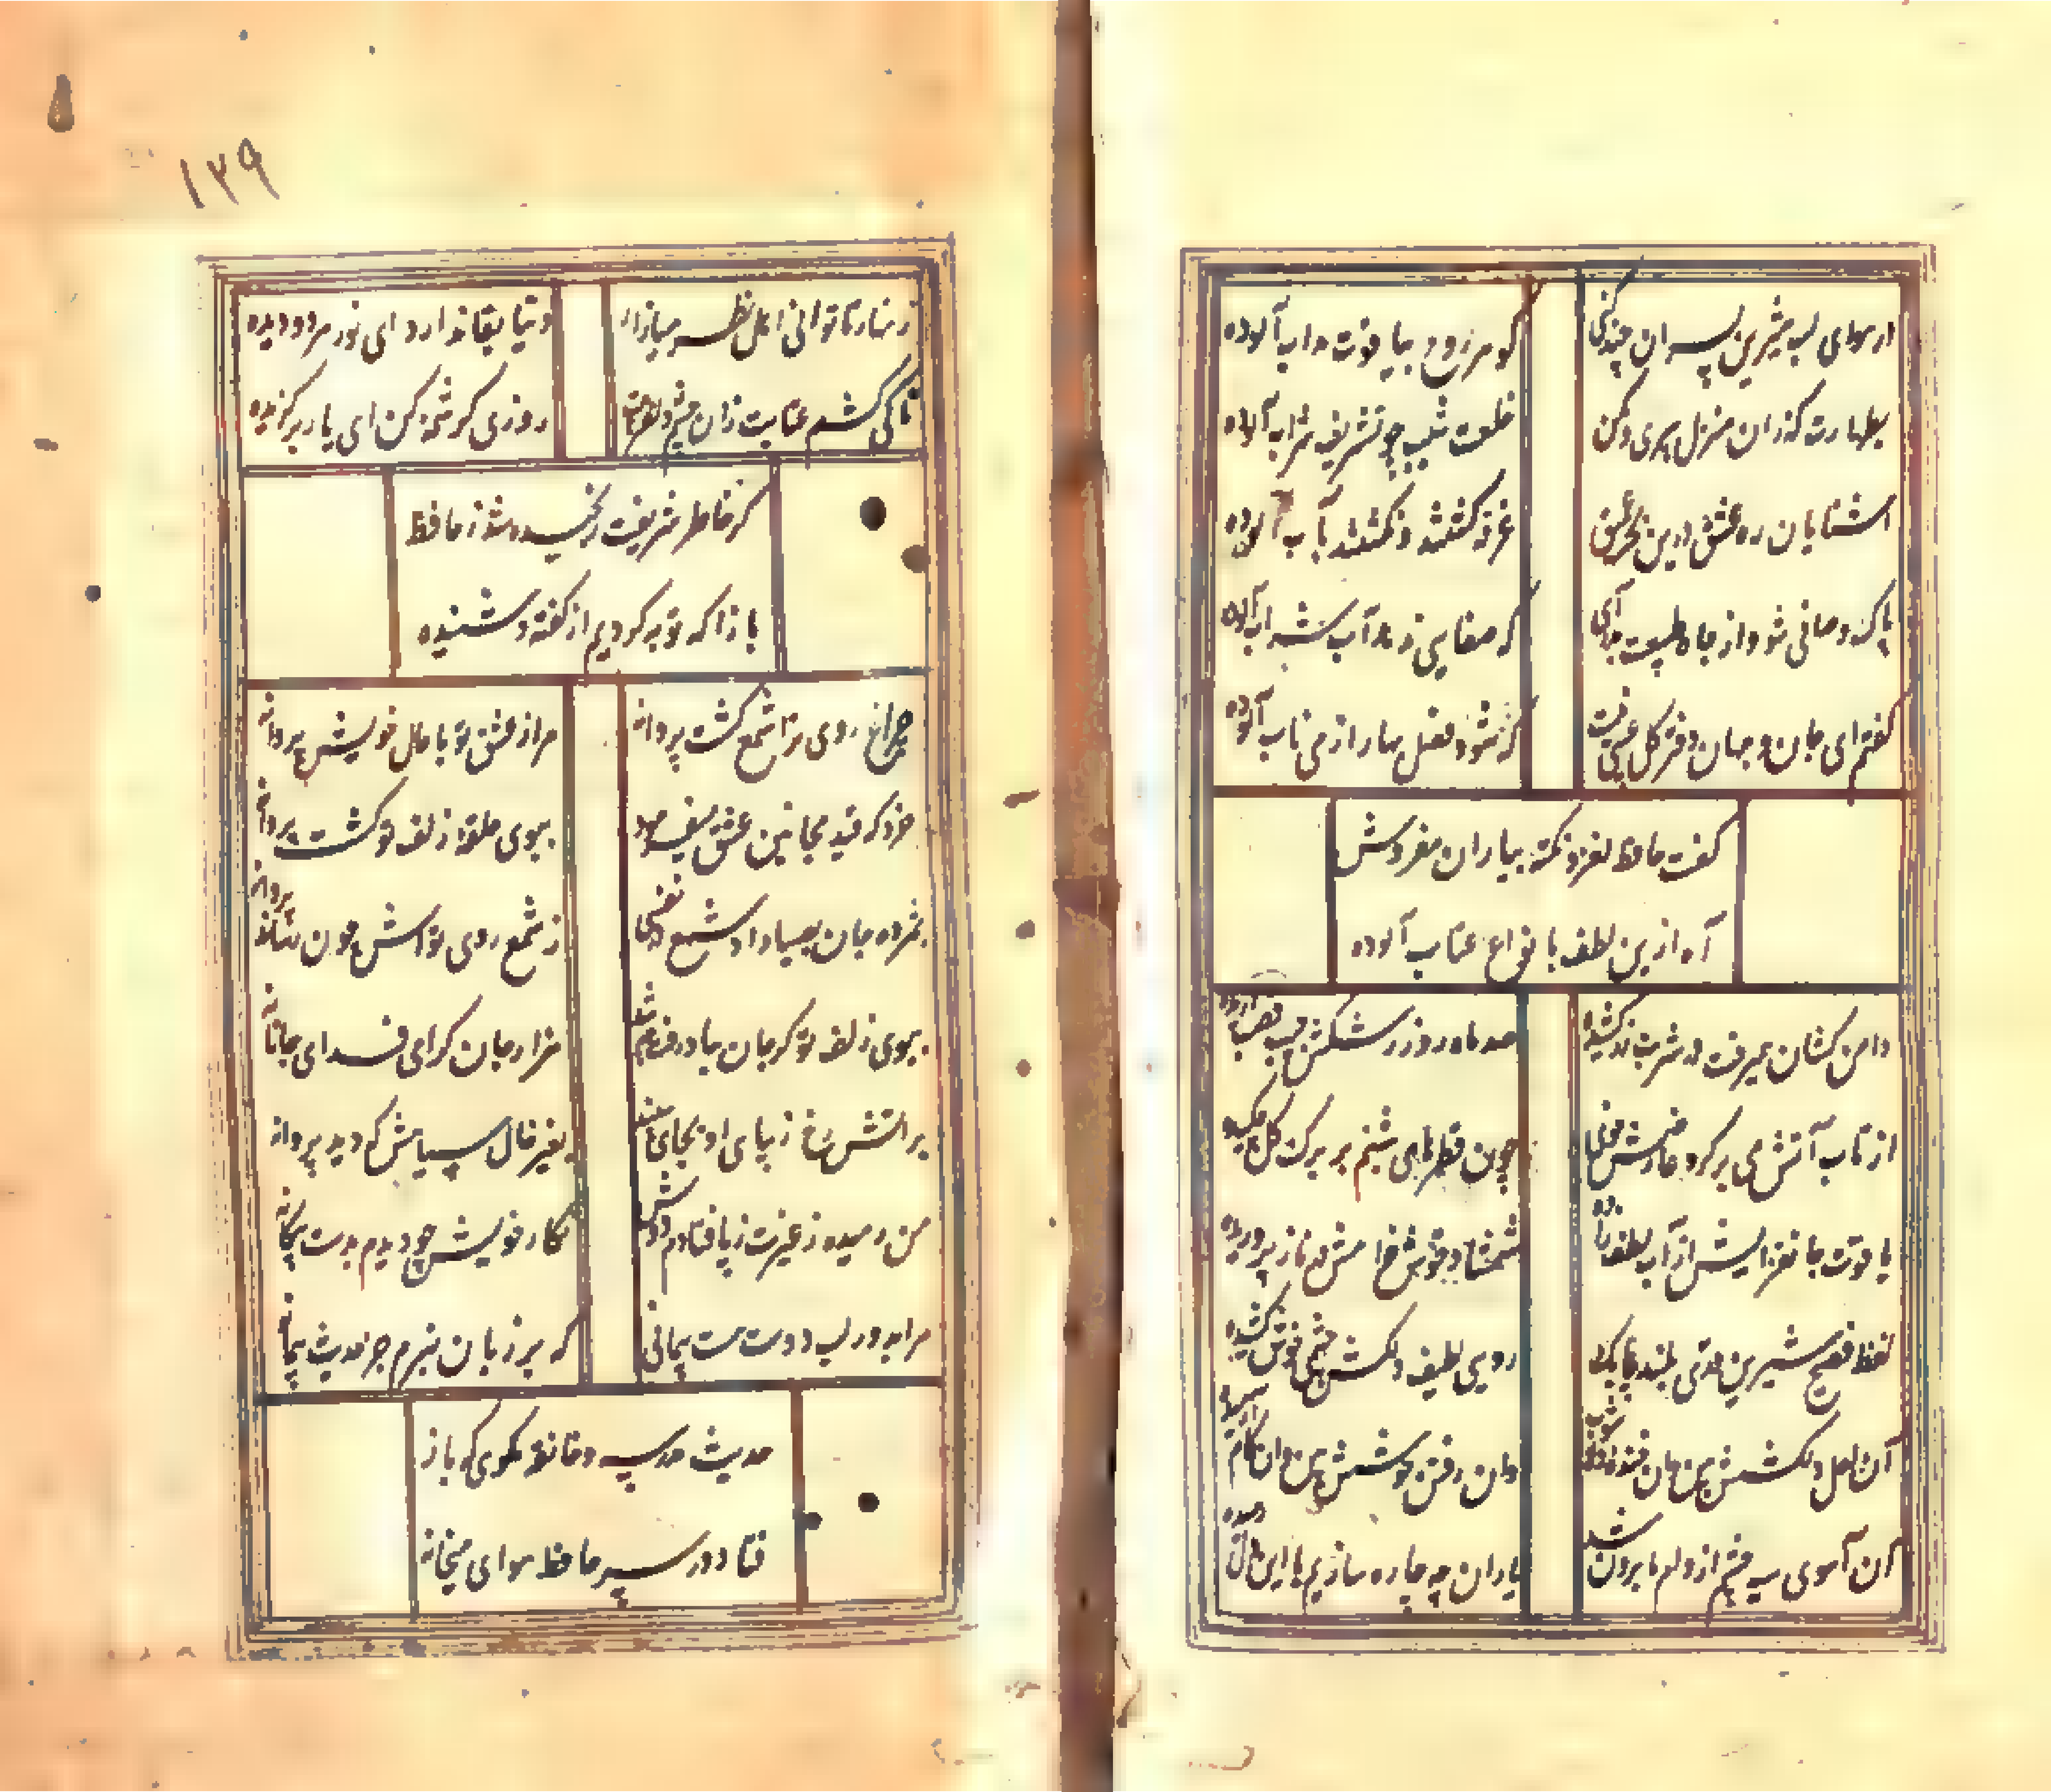 در هوای لب شیرین پسران چند کنی
گوهر روح بیاقوت مذاب آلوده
بطهارت گذران منزل پیری و مکن
خلعت شیب چو تشریف شراب آلوده
آشنایان ره عشق درین بحر عمیق
غرقه گشتند و نگشتند بآب آلوده
پاک و صافی شو و از چاه طبیعت بدرآی
که صفایی ندهد آب تراب آلوده
گفتم ای جان و جهان دفتر گل عیبی نیست
که شود فصل بهار از می ناب آلوده
گفت حافظ لغز و نکته بیاران مفروش
آه ازین لطف بانواع عتاب آلوده
دامن کشان میرفت در شرب زر کشیده
صد ماه رو ز رشکش جیب قصب دریده
از تاب آتش می بر گرد عارضش خوی
چون قطرهای شبنم بر برگ گل چکیده
یاقوت جانفزایش از آب لطف زاده
شمشاد خوش خرامش در ناز پروریده
لفظ فصیح شیرین قدی بلند چابک
روی لطیف دلکش چشم خوش کشیده
آن لعل دلکشش بین وان خنده
وان رفتن خوشش بین وان گام آرمیده
آن آهوی سیه چشم از دام ما برون شد
یاران چه چاره سازیم با این دل رمیده
۱۲۹
زنهار تا توانی اهل نظر میازار
دنیا بقا ندارد ای نور هر دو دیده
تا کی کشم عتابت زان چشم دلفریبت
روزی کرشمه کن ای یار برگزیده
گر خاطر شریفت رنجیده شد ز حافظ
بازآ که توبه کردیم از گفته و شنیده
چراغ روی ترا شمع گشت پروانه
مرا ز عشق تو با حال خویش پروانه
خرد که قید مجانین عشق میفرمود
ببوی حلقه زلف تو گشت
بمژده جان بصبا داد شمع در نفسی
ز شمع روی تواش چون رساند پروانه
ببوی زلف تو گر جان بباد رفت چه شد
هزار جان گرامی فدای جانانه
بر آتش رخ زیبای او بجای سپند
بغیر خال سیاهش که دید به دانه
من رمیده ز غیرت ز پا فتادم دوش
نگار خویش چو دیدم بدست بیگانه
مرا بدور لب دوست هست پیمانی
که بر زبان نبرم جز حدیث پیمانه
حدیث مدرسه و خانقه مگوی که باز
فتاد در سر حافظ هوای میخانه